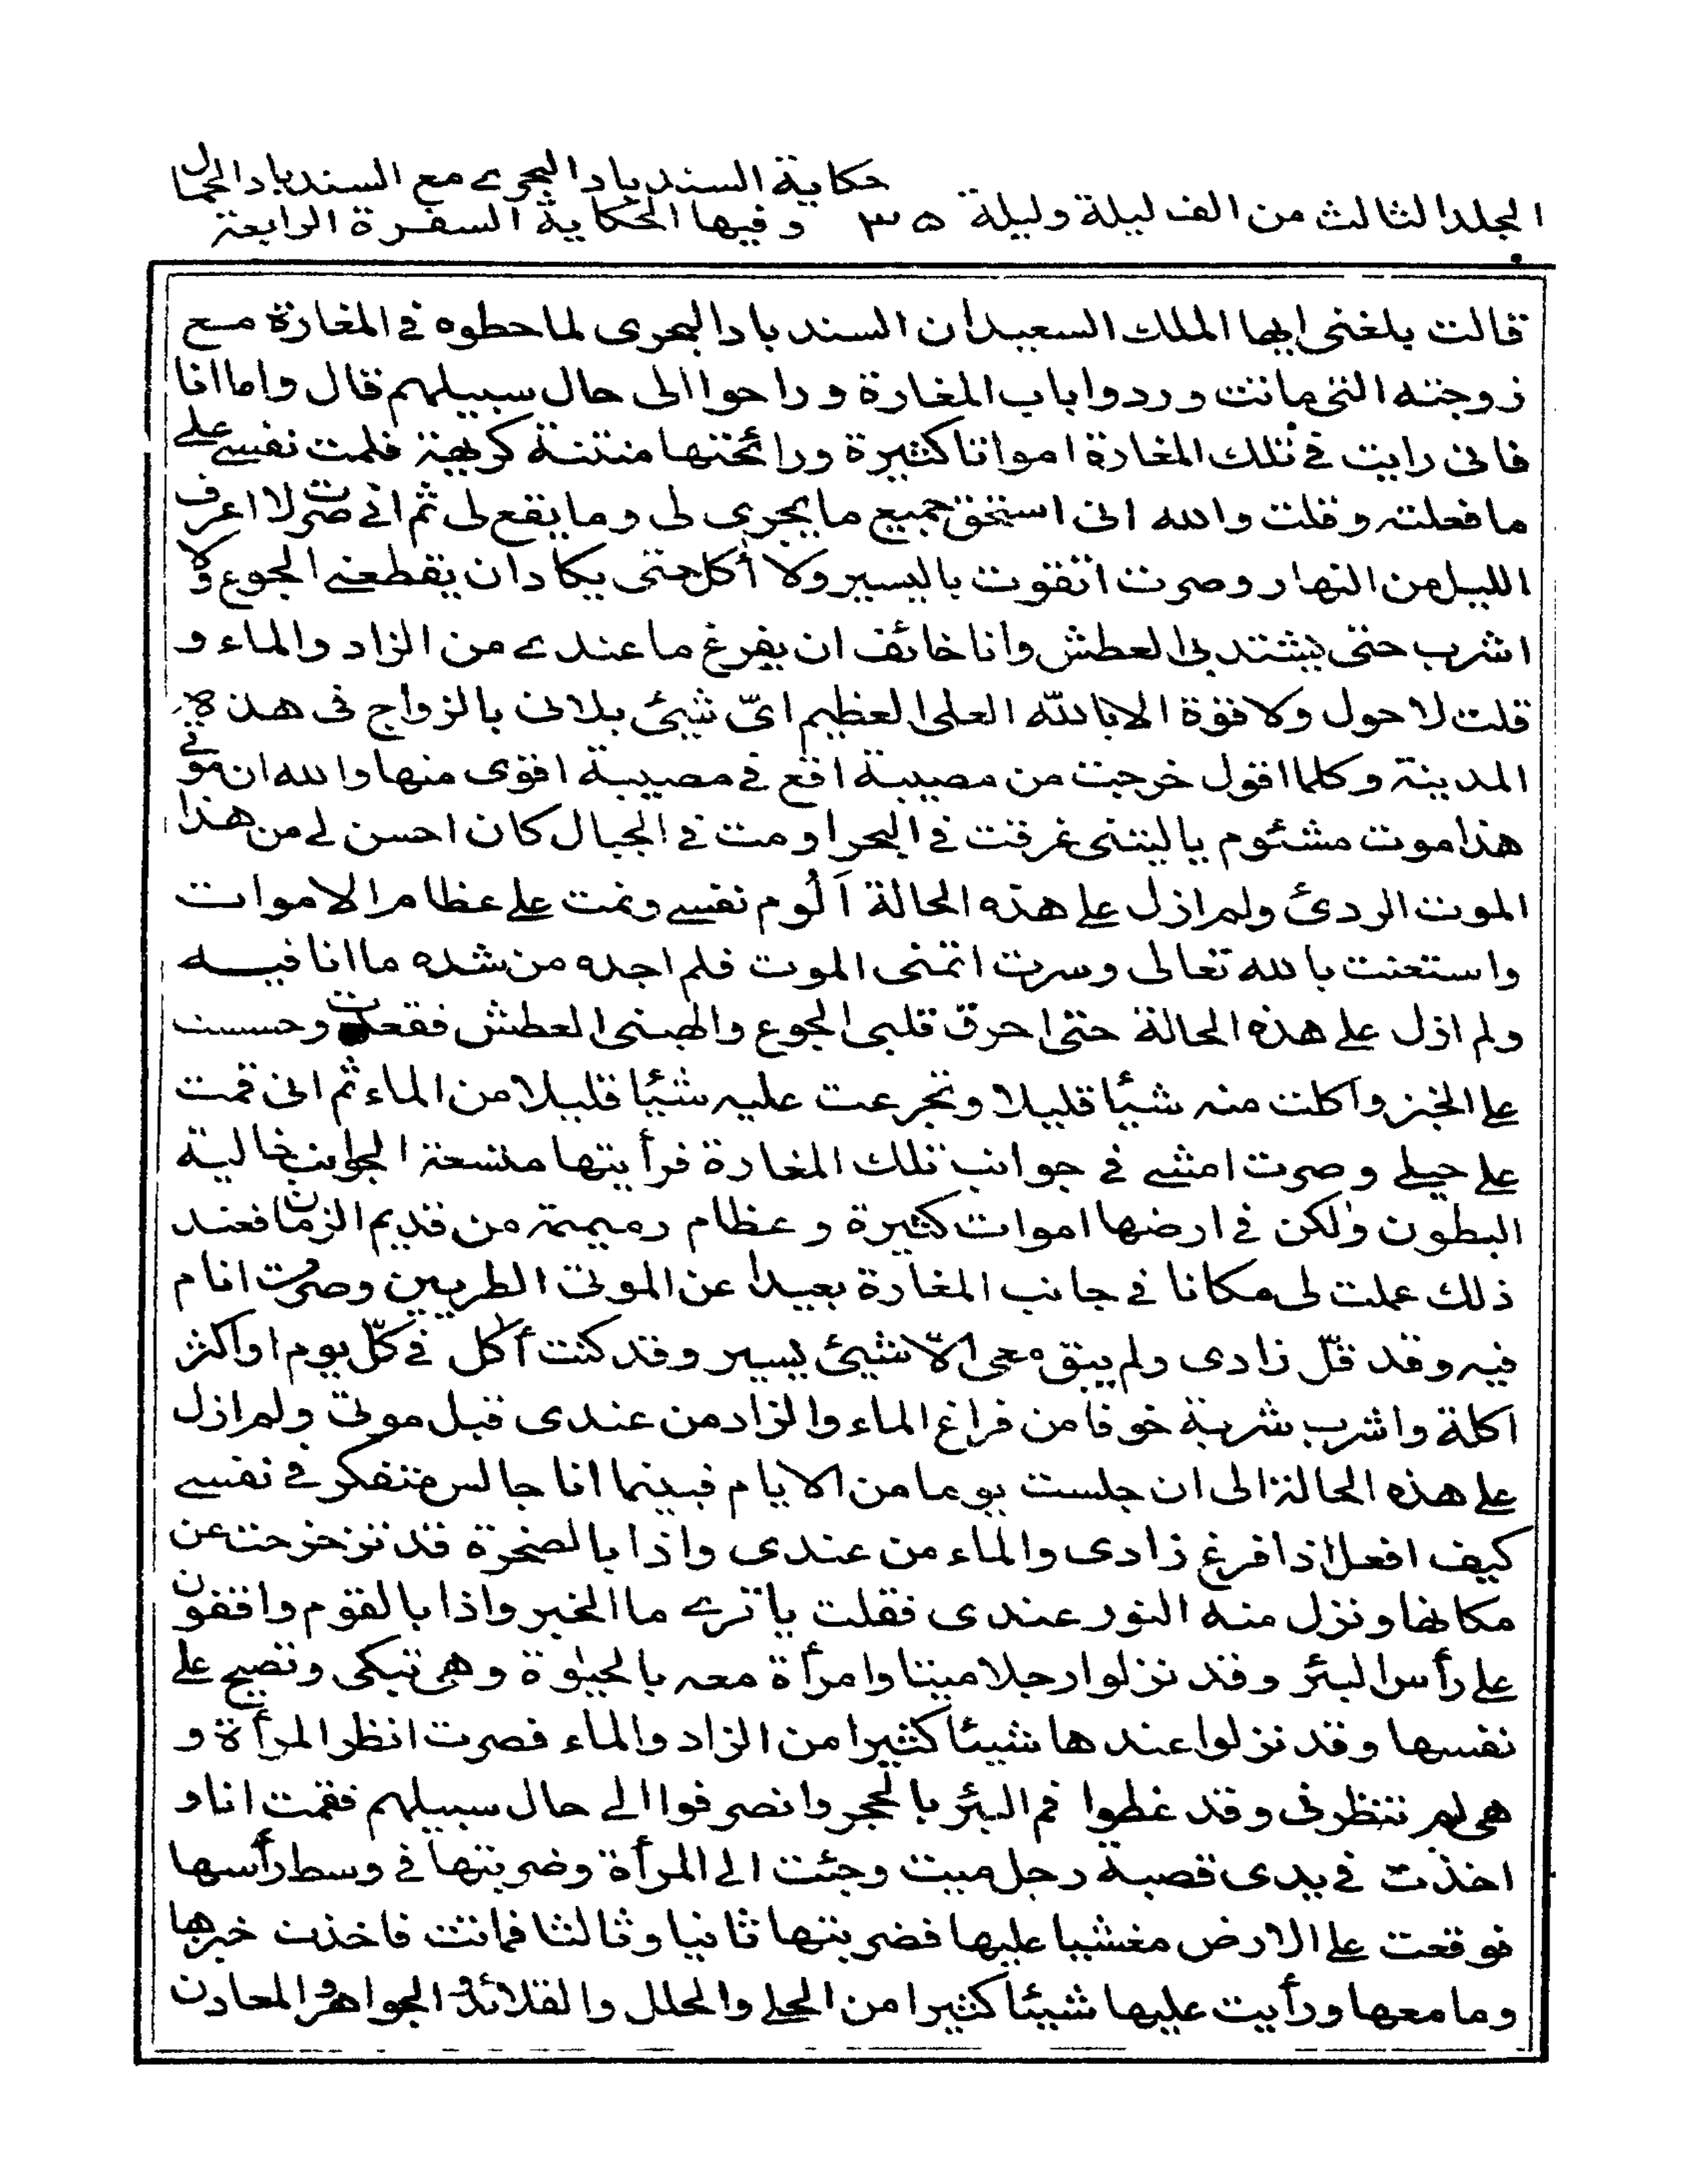 المجلد الثالث من الف ليلة وليلة ٣٥
حكاية السندباد البحرے مع السندباد الحمال
وفيها الحكاية السفرة الرابعة
قالت بلغنى ايها الملك السعيد ان السندباد البحرى لما حطوه فے المغارة مع
زوجته التى ماتت وردوا باب المغارة وراحوا الى حال سبيلهم قال واما انا
فانى رايت فے تلك المغارة امواتا كثيرة ورائحتها منتنة كريهة فلمت نفسے علے
ما فعلته وقلت والله انى استحق جميع ما يجرى لى وما يقع لى ثم انے صرت لا اعرف
الليل من النهار وصرت اتقوت باليسير ولا أكل حتى يكاد ان يقطعنے الجوع ولا
اشرب حتى يشتد بى العطش وانا خائف ان يفرغ ما عندے من الزاد والماء و
قلت لا حول ولا قوة الا بالله العلى العظيم اىّ شيئ بلانى بالزواج فى هذه
المدينة وكلما اقول خرجت من مصيبة اقع فے مصيبة اقوى منها والله ان موتے
هذا موت مشئوم ياليتنى غرقت فے البحر او مت فے الجبال كان احسن لے من هذا
الموت الردئ ولم ازل علے هذه الحالة اَلُوم نفسے ونمت علے عظام الاموات
واستعنت بالله تعالى وسرت اتمنى الموت فلم اجده من شده ما انا فيه
ولم ازل علے هذه الحالة حتى احرق قلبى الجوع والهبنى العطش فقعدت وحسست
علے الخبز واكلت منه شئًا قليلا وتجرعت عليه شئًا قليلا من الماء ثم انى قمت
علے حيلے وصرت امشے فے جوانب تلك المغارة فرأيتها متسعة الجوانب خالية
البطون ولكن فے ارضها اموات كثيرة وعظام رميمة من قديم الزمان فعند
ذلك عملت لى مكانا فے جانب المغارة بعيدا عن الموتى الطريين وصرت انام
فيه وقد قلّ زادى ولم يبق معى الّا شيئ يسير وقد كنت أكل فے كلّ يوم او اكثر
اكلة واشرب شربة خوفا من فراغ الماء والزاد من عندى قبل موتى ولم ازل
علے هذه الحالة الى ان جلست يوما من الايام فبينما انا جالس متفكر فے نفسے
كيف افعل اذا فرغ زادى والماء من عندى واذا بالصخرة قد تزحزحت عن
مكانها ونزل منه النور عندى فقلت يا ترے ما الخبر واذا بالقوم واقفون
علے رأس البئر وقد نزلوا رجلا ميتا وامرأة معه بالحيٰوة وهى تبكى وتصيح علے
نفسها وقد نزلوا عندها شيئا كثيرا من الزاد والماء فصرت انظر المرأة و
هى لم تنظرنى وقد غطوا فم البئر بالحجر وانصرفوا الے حال سبيلهم فقمت انا و
اخذت فے يدى قصبة رجل ميت وجئت الے المرأة وضربتها فے وسط رأسها
فوقعت علے الارض مغشيا عليها فضربتها ثانيا وثالثا فماتت فاخذت خبزها
وما معها ورأيت عليها شيئا كثيرا من الحلے والحلل والقلائد والجواهر والمعادن